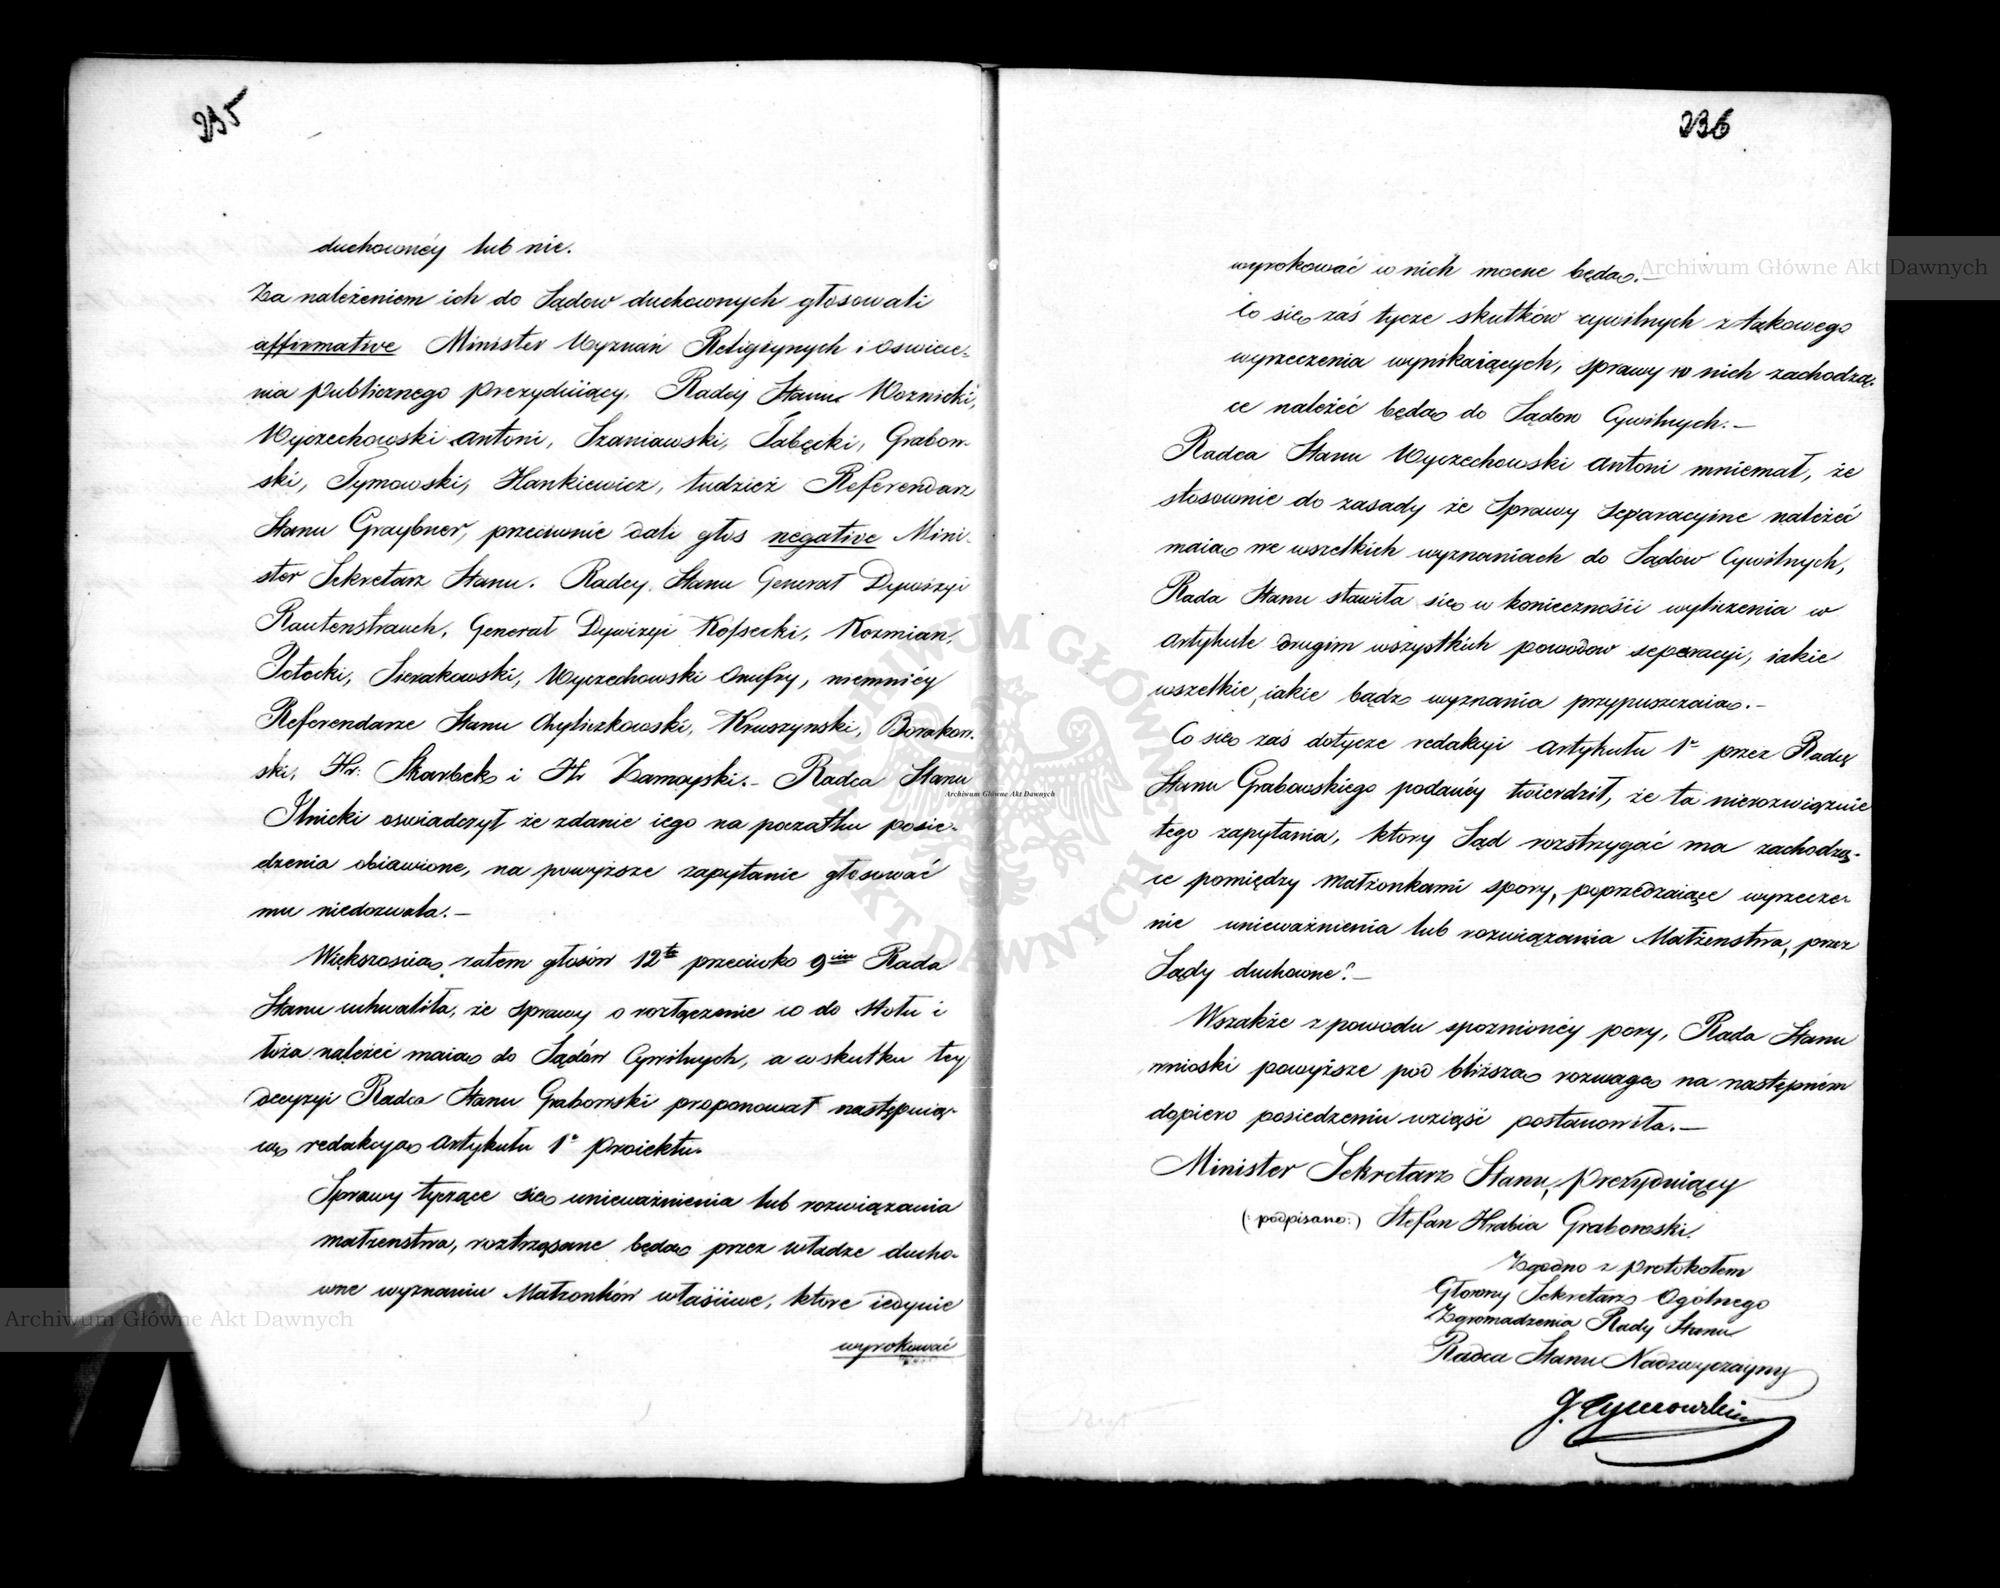 235
duchownéy lub nie.
Za należeniem ich do Sądow duchownych głosowali
affirmative Minister Wyznań Religiynych i Oswiece-
nia Publicznego Prezyduiący, Radcy Stanu Woznicki,
Wyczechowski Antoni, Szaniawski, Łabęcki, Grabow-
ski, Tymowski, Hankiewicz, tudzież Referendarz
Stanu Graybner, przeciwnie dali głos negative Mini-
ster Sekretarz Stanu. Radcy Stanu Generał Dywizyi
Rautenstrauch, Generał Dywizyi Kossecki, Kozmian,
Potocki, Sierakowski, Wyczechowski Onufry, niemniéy
Referendarze Stanu Chyliczkowski, Kruszynski, Borakow-
ski, Hr: Skarbek i Hr Zamoyski.— Radca Stanu
Ilnicki oswiadczył że zdanie iego na początku posie-
dzenia obiawione, na powyższe zapytanie głosować
mu niedozwala.—
Większością zatem głosów 12tu przeciwko 9im Rada
Stanu uchwaliła, że sprawy o rozłączenie co do stołu i
łoża należeć maią do Sądów Cywilnych, a w skutku tey
decyzyi Radca Stanu Grabowski proponował następuią-
cą redakcyą Artykułu 1o Proiektu.
Sprawy tyczące się unieważnienia lub rozwiązania
małżenstwa, roztrząsane będą przez władze ducho-
wne wyznaniu Małżonków właściwe, ktore iedynie
wyrokować
236
wyrokować w nich mocne będą.—
Co się zaś tycze skutków cywilnych z takowego
wyrzeczenia wynikaiących, sprawy w nich zachodzą-
ce należéć będą do Sądow Cywilnych.—
Radca Stanu Wyczechowski Antoni mniemał, że
stosownie do zasady że Sprawy Separacyine należéć
maią we wszelkich wyznaniach do Sądow Cywilnych,
Rada Stanu stawiła się w konieczności wyliczenia w
Artykule drugim wszystkich powodow separacyi, iakie
wszelkie, iakie bądz wyznania przypuszczaią.—
Co się zaś dotycze redakcyi Artykułu 1o przez Radcę
Stanu Grabowskiego podanéy twierdził, że ta nierozwiązuie
tego zapytania, ktory Sąd rozstrzygać ma zachodzą-
ce pomiędzy Małżonkami spory, poprzedzaiące wyrzecze-
nie unieważnienia lub rozwiązania Małżenstwa, przez
Sądy duchowne?—
Wszakże z powodu spoznionéy pory, Rada Stanu
wnioski powyższe pod bliższą rozwagę na następném
dopiero posiedzeniu wziąść postanowiła.—
Minister Sekretarz Stanu, Prezyduiący
(: podpisano:) Stefan Hrabia Grabowski.
Zgodno z Protokołem
Głowny Sekretarz Ogólnego
Zgromadzenia Rady Stanu
Radca Stanu Nadzwyczayny
J. Tymowski
Archiwum Główne Akt Dawnych
Archiwum Główne Akt Dawnych
Archiwum Główne Akt Dawnych
ARCHIWUM GŁÓWNE AKT DAWNYCH